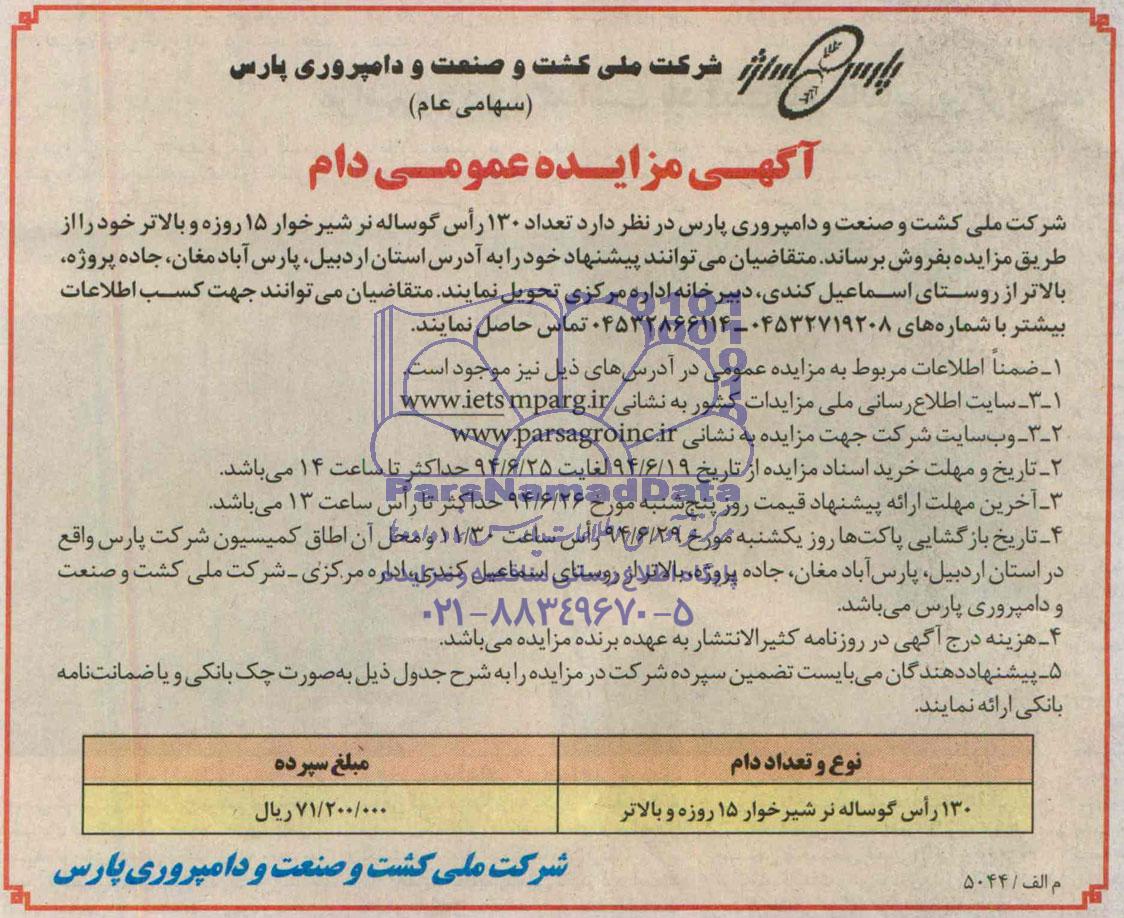 پارس
شرکت ملی کشت و صنعت و دامپروری پارس
(سهامی عام)
آگهی مزایده عمومی دام
شرکت ملی کشت و صنعت و دامپروری پارس در نظر دارد تعداد ۱۳۰ رأس گوساله نر شیرخوار ۱۵ روزه و بالاتر خود را از
طریق مزایده بفروش برساند. متقاضیان می‌توانند پیشنهاد خود را به آدرس استان اردبیل، پارس آباد مغان، جاده پروژه،
بالاتر از روستای اسماعیل کندی، دبیرخانه اداره مرکزی تحویل نمایند. متقاضیان می‌توانند جهت کسب اطلاعات
بیشتر با شماره‌های ۰۴۵۳۲۷۱۹۲۰۸ــ۰۴۵۳۲۸۶۶۱۱۴ تماس حاصل نمایند.
۱ـ ضمناً اطلاعات مربوط به مزایده عمومی در آدرس‌های ذیل نیز موجود است.
۳ـ۱ـ سایت اطلاع‌رسانی ملی مزایدات کشور به نشانی www.iets mparg.ir
۳ـ۲ـ وب‌سایت شرکت جهت مزایده به نشانی www.parsagroinc.ir
۲ـ تاریخ و مهلت خرید اسناد مزایده از تاریخ ۹۴/۶/۱۹ لغایت ۹۴/۶/۲۵ حداکثر تا ساعت ۱۴ می‌باشد.
ParsNamadData
۳ـ آخرین مهلت ارائه پیشنهاد قیمت روز پنج‌شنبه مورخ ۹۴/۶/۲۶ حداکثر تا رأس ساعت ۱۳ می‌باشد.
۴ـ تاریخ بازگشایی پاکت‌ها روز یکشنبه مورخ ۹۴/۶/۲۹ رأس ساعت ۱۱/۳۰ و محل آن اطاق کمیسیون شرکت پارس واقع
در استان اردبیل، پارس‌آباد مغان، جاده پروژه، بالاتر از روستای اسماعیل کندی، اداره مرکزی ـ شرکت ملی کشت و صنعت
پایگاه اطلاع رسانی مناقصه و مزایده
و دامپروری پارس می‌باشد.
۰۲۱-۸۸۳۴۹۶۷۰-۵
۴ـ هزینه درج آگهی در روزنامه کثیرالانتشار به عهده برنده مزایده می‌باشد.
۵ـ پیشنهاددهندگان می‌بایست تضمین سپرده شرکت در مزایده را به شرح جدول ذیل به‌صورت چک بانکی و یا ضمانت‌نامه
بانکی ارائه نمایند.
نوع و تعداد دام	مبلغ سپرده
۱۳۰ رأس گوساله نر شیرخوار ۱۵ روزه و بالاتر	۷۱/۲۰۰/۰۰۰ ریال
شرکت ملی کشت و صنعت و دامپروری پارس
م الف / ۵۰۴۴